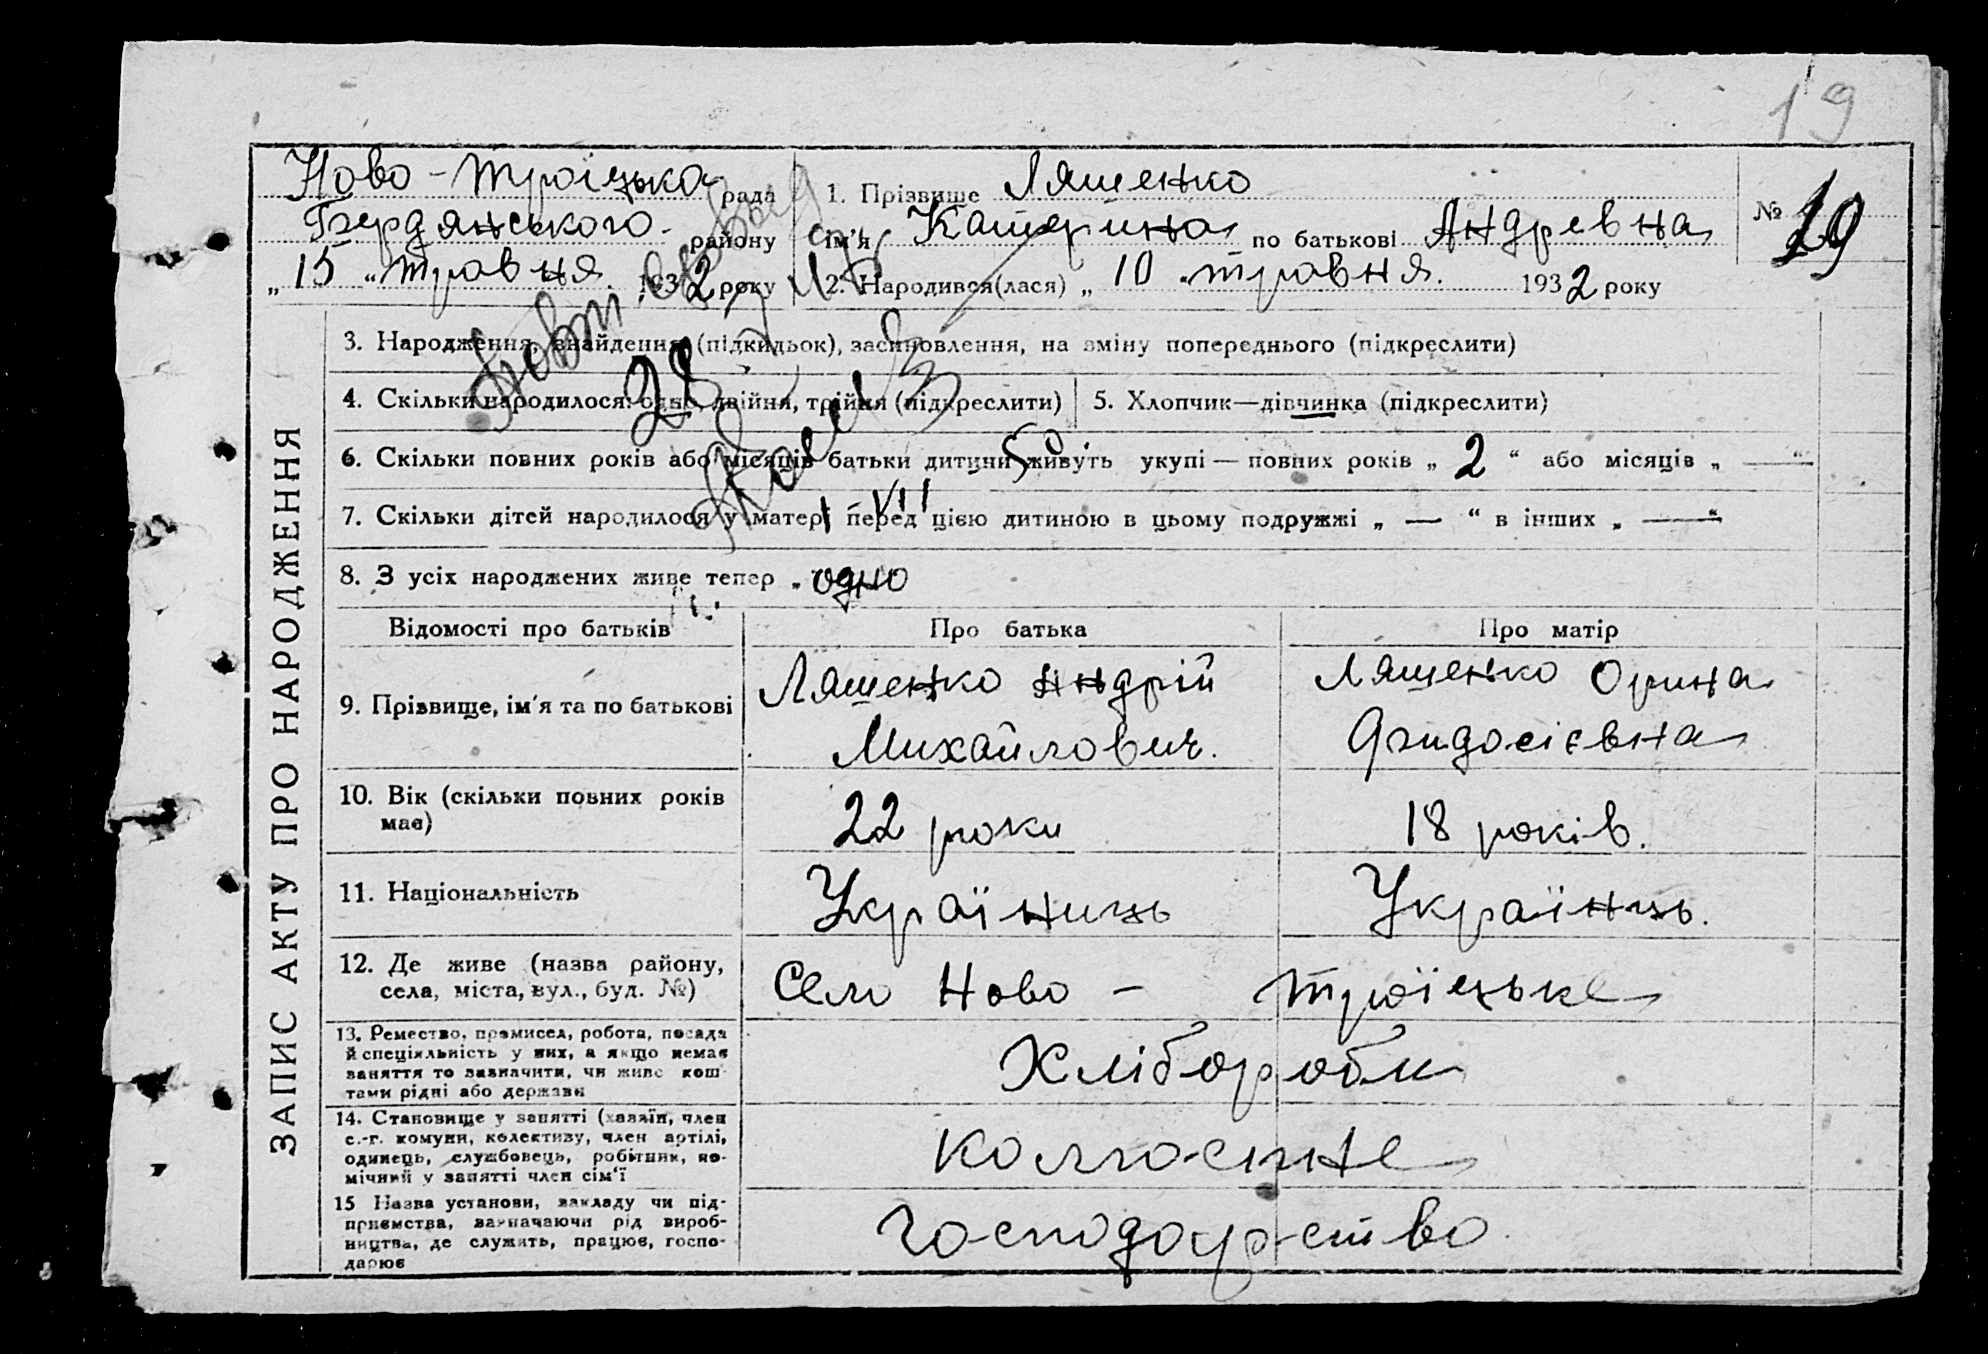 19
Ново-Троїцька рада
Бердянського району
„15“ травня 1932 року
1. Прізвище Ляшенко
ім'я Катерина по батькові Андревна
2. Народився(лася) „10“ травня. 1932 року
№ 19
ЗАПИС АКТУ ПРО НАРОДЖЕННЯ
3. Народження, знайдення (підкидьок), засиновлення, на зміну попереднього (підкреслити)
4. Скільки народилося: одно, двійня, трійня (підкреслити)
5. Хлопчик—дівчинка (підкреслити)
28
6. Скільки повних років або місяців батьки дитини живуть укупі — повних років „2“ або місяців „—“
7. Скільки дітей народилося у матері перед цією дитиною в цьому подружжі „—“ в інших „—“
8. З усіх народжених живе тепер „одно
Відомості про батьків
Про батька
Про матір
9. Прізвище, ім'я та по батькові
Ляшенко Андрій
Михайлович.
Ляшенко Орина
Фидосієвна
10. Вік (скільки повних років
має)
22 роки
18 років.
11. Національність
Україниць
Українць.
12. Де живе (назва району,
села, міста, вул., буд. №)
Село Ново - Троїцьке
13. Ремество, промисел, робота, посада
й спеціяльність у них, а якщо немає
заняття то зазначити, чи живе кош-
тами рідні або держави
Хлібороби
14. Становище у занятті (хазяїн, член
с.-г. комуни, колективу, член артілі,
одинець, службовець, робітник, по-
мічний у занятті член сім'ї
колгоспне
15 Назва установи, закладу чи під-
приємства, зазначаючи рід вироб-
ництва, де служить, працює, госпо-
дарює
господарство.